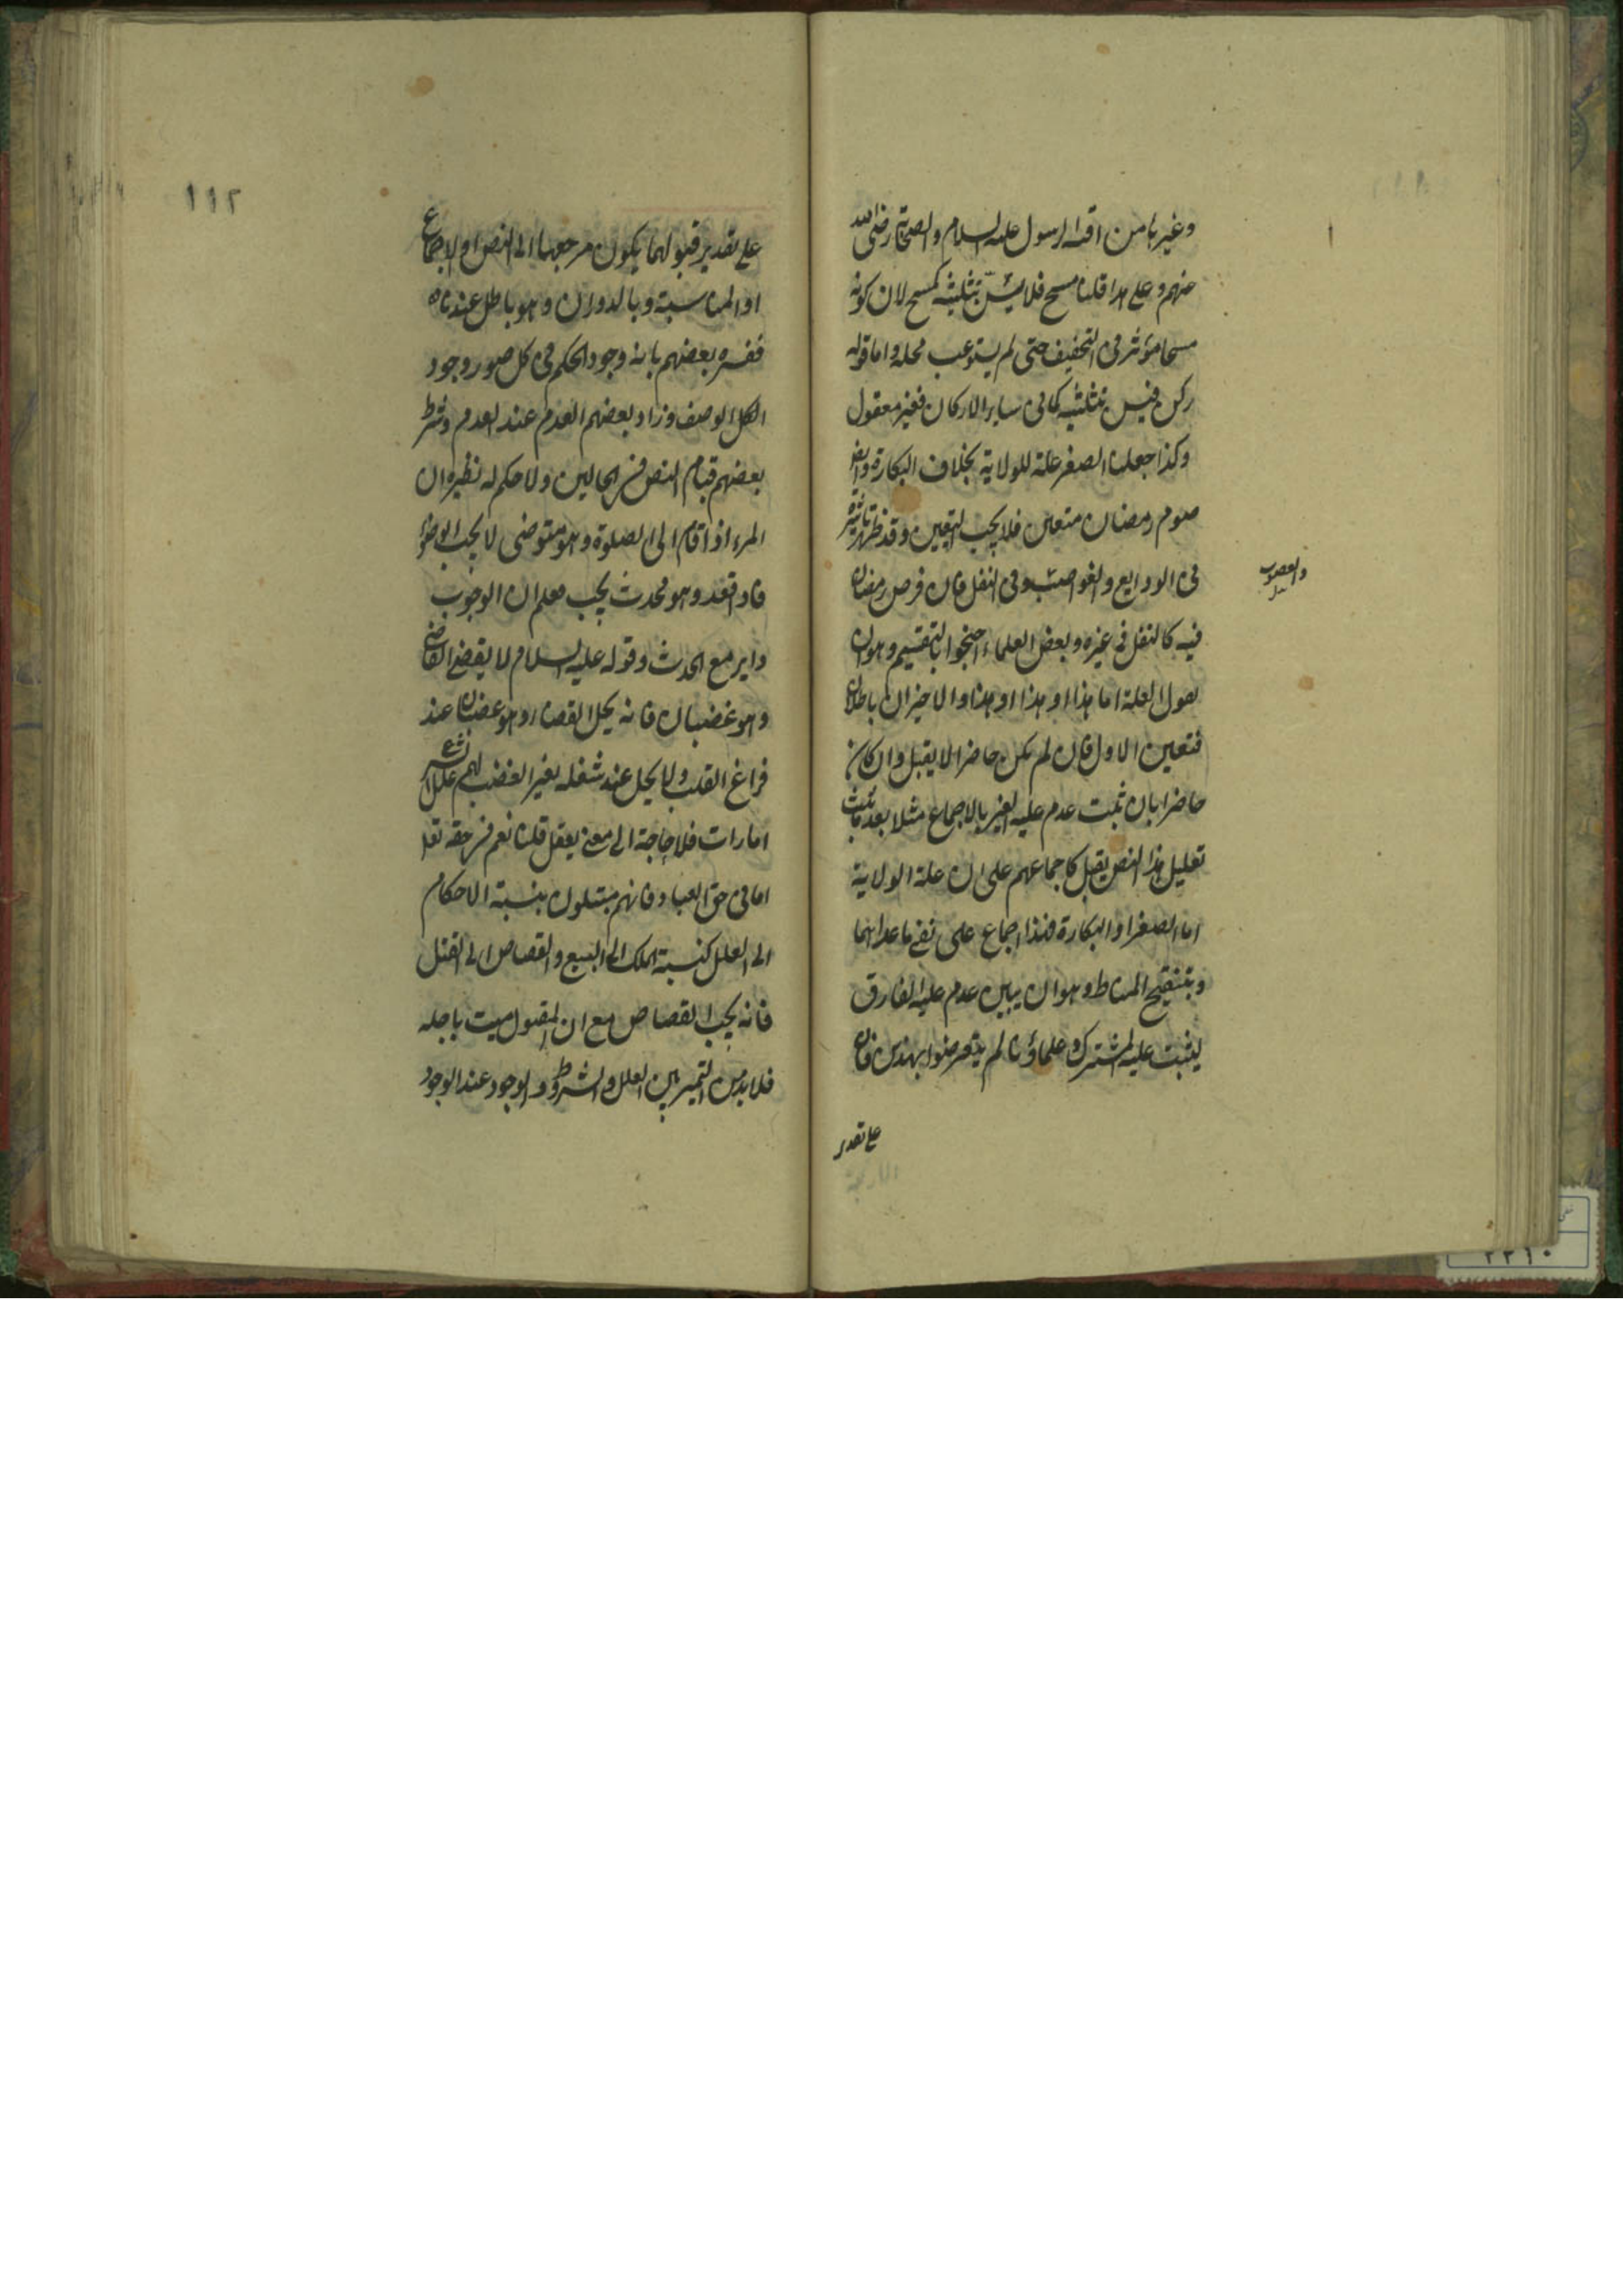 وغيرها من اقيسة الرسول عليه السلام والصحابة رضى الله
عنهم وعلى هذا قلنا مسح فلا يسن تثليثه كمسح لان كونه
مسحا مؤثر فى التخفيف حتى لم يستوعب محله واما قوله
ركن فيسن تثليثه كما فى ساير الاركان فغير معقول
وكذا جعلنا الصغر علة للولاية بخلاف البكارة وايضا
صوم رمضان متعين فلا يجب التعيين وقد ظهر تاثيره
فى الودايع والغواصب وفى النفل فان فرض رمضان
والغصوب
فيه كالنفل فى غيره وبعض العلماء احتجوا بالتقسيم وهو ان
يقول العلة اما هذا او هذا او هذا والاخيران باطلان
فتعين الاول فان لم يكن حاضرا لا يقبل وان كان
حاضرا بان ثبت عدم علية الغير بالاجماع مثلا بعد ما ثبت
تعليل هذا النص يقبل كاجماعهم على ان علة الولاية
اما الصغر او البكارة فهذا اجماع على نفى ما عداهما
وبتنقيح المناط وهو ان يبين عدم علية الفارق
ليثبت علية المشترك وعلماؤنا لم يتعرضوا بهذين فان
على تقدير
١١٢
على تقدير قبولهما يكون مرجعهما الى النص او الاجماع
او المناسبة وبالدوران وهو باطل عندنا
ففسره بعضهم بانه وجود الحكم فى كل صور وجود
الوصف وزاد بعضهم العدم عند العدم وشرط
بعضهم قيام النص فى الحالين ولا حكم له نظيره ان
المرء اذا قام الى الصلوة وهو متوضى لا يجب الوضوء
واذا قعد وهو محدث يجب فعلم ان الوجوب
داير مع الحدث وقوله عليه السلام لا يقضى القاضى
وهو غضبان فانه يحل القضاء وهو غضبان عند
فراغ القلب ولا يحل عند شغله بغير الغضب لهم علل الشرع
امارات فلا حاجة الى معنى يعقل قلنا نعم فى حقه تعالى
اما فى حق العباد فانهم مبتلون بنسبة الاحكام
الى العلل كنسبة الملك الى البيع والقصاص الى القتل
فانه يجب القصاص مع ان المقتول ميت باجله
فلا بد من التمييز بين العلل والشروط والوجود عند الوجود
٢٢١٠